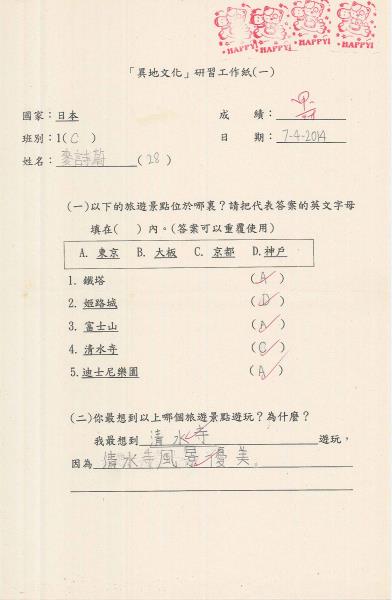 HAPPY! HAPPY! HAPPY! HAPPY!
「異地文化」研習工作紙(一)
國家：日本 成績：甲
班別：1(C) 日期：7-4-2014
姓名：麥詩蔚(28)
(一)以下的旅遊景點位於哪裏？請把代表答案的英文字母
填在( )內。(答案可以重覆使用)
A. 東京 B. 大板 C. 京都 D.神戶
1. 鐵塔 (A)
2. 姬路城 (D)
3. 富士山 (A)
4. 清水寺 (C)
5.迪士尼樂園 (A)
(二)你最想到以上哪個旅遊景點遊玩？為什麼？
我最想到 清水寺 遊玩，
因為 清水寺風景優美。